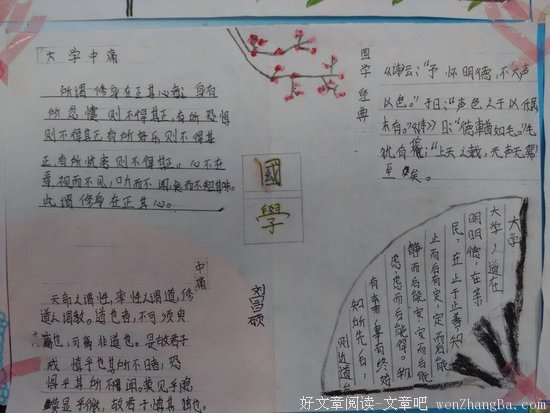 大学中庸
所谓修身在正其心者,身有
所忿懥则不得其正,有所恐惧
则不得其正有所好乐则不得其
正,有所忧患则不得其正。心不在
焉,视而不见,听而不闻,食而不知其味。
此谓修身在正其心。
国学经典
《诗云:“予怀明德,不大声
以色。”子曰:“声色之于以化民
末有。”《诗》曰:“德輶如毛。”毛
犹有伦;“上天之载,无声无臭”
至矣。
國
學
大学
大学之道在
明明德,在亲
民,在止于止善知
止而后有定,定而后能
静而后能安,安而后能
虑虑而后能得。物
有本末事有终始
知所先后,
则近道矣
中庸
天命之谓性,率性之谓道,修
道之谓教。道也者,不可须臾
离也,可离非道也。是故君子
戒慎乎其所不睹,恐
惧乎其所不闻,莫见乎隐,
莫显乎微,故君子慎其独也。
刘昌硕
好文章阅读-文章吧.wenZhangBa.com